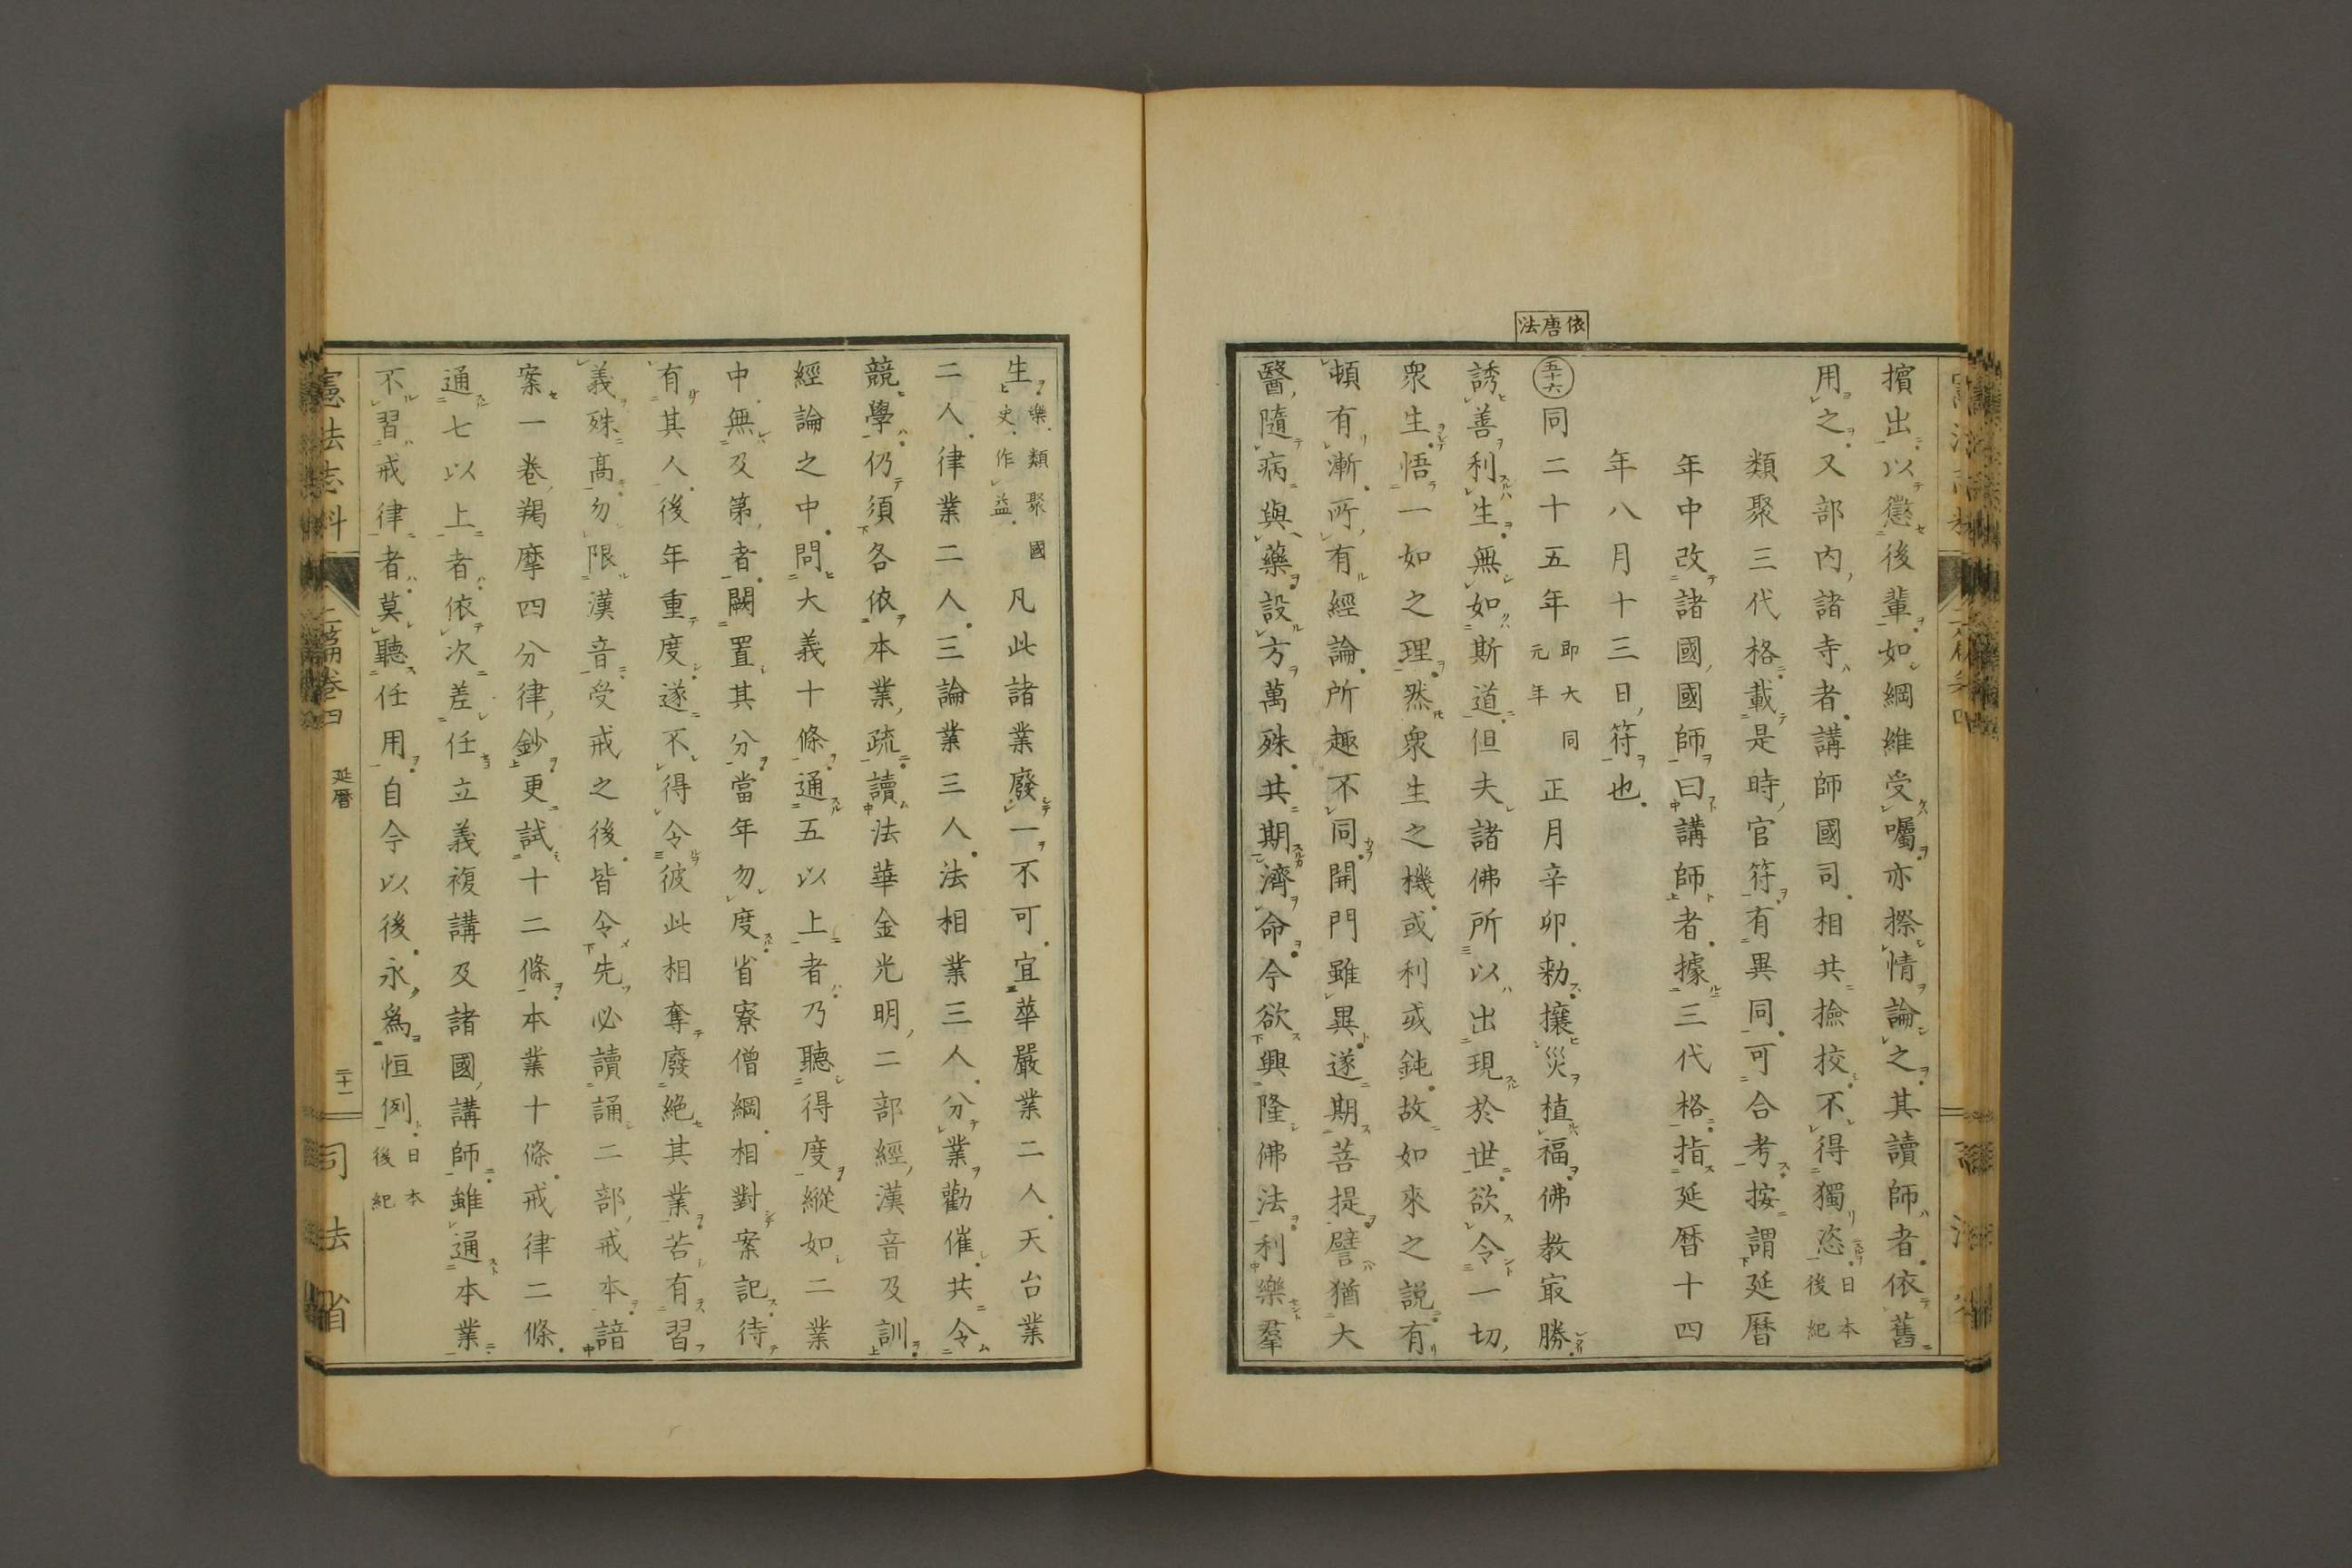 擯出以懲後輩如綱維受囑亦擦情論之其讀師者依舊
用之又部內諸寺者講師國司相共撿挍不得獨恣日本後紀
類聚三代格載是時官符有異同可合考按謂延曆
年中改諸國國師曰講師者據三代格指延曆十四
年八月十三日符也
依唐法
五十六 同二十五年即大同元年正月辛卯勅攘災植福佛教㝡勝
誘善利生無如斯道但夫諸佛所以出現於世欲令一切
衆生悟一如之理然衆生之機或利或鈍故如來之說有
頓有漸所有經論所趣不同開門雖異遂期菩提譬猶大
醫隨病與藥設方萬殊共期濟命今欲興隆佛法利樂羣
生樂類聚國史作益凡此諸業廢一不可宜華嚴業二人天台業
二人律業二人三論業三人法相業三人分業勸催共令
競學仍須各依本業疏讀法華金光明二部經漢音及訓
經論之中問大義十條通五以上者乃聽得度縱如二業
中無及第者闕置其分當年勿度省寮僧綱相對案記待
有其人後年重度遂不得令彼此相奪廢絶其業若有習
義殊高勿限漢音受戒之後皆令先必讀誦二部戒本諳
案一卷羯摩四分律鈔更試十二條本業十條戒律二條
通七以上者依次差任立義複講及諸國講師雖通本業
不習戒律者莫聽任用自今以後永爲恒例日本後紀
憲法志料 二篇卷四 延曆 二十一 司法省